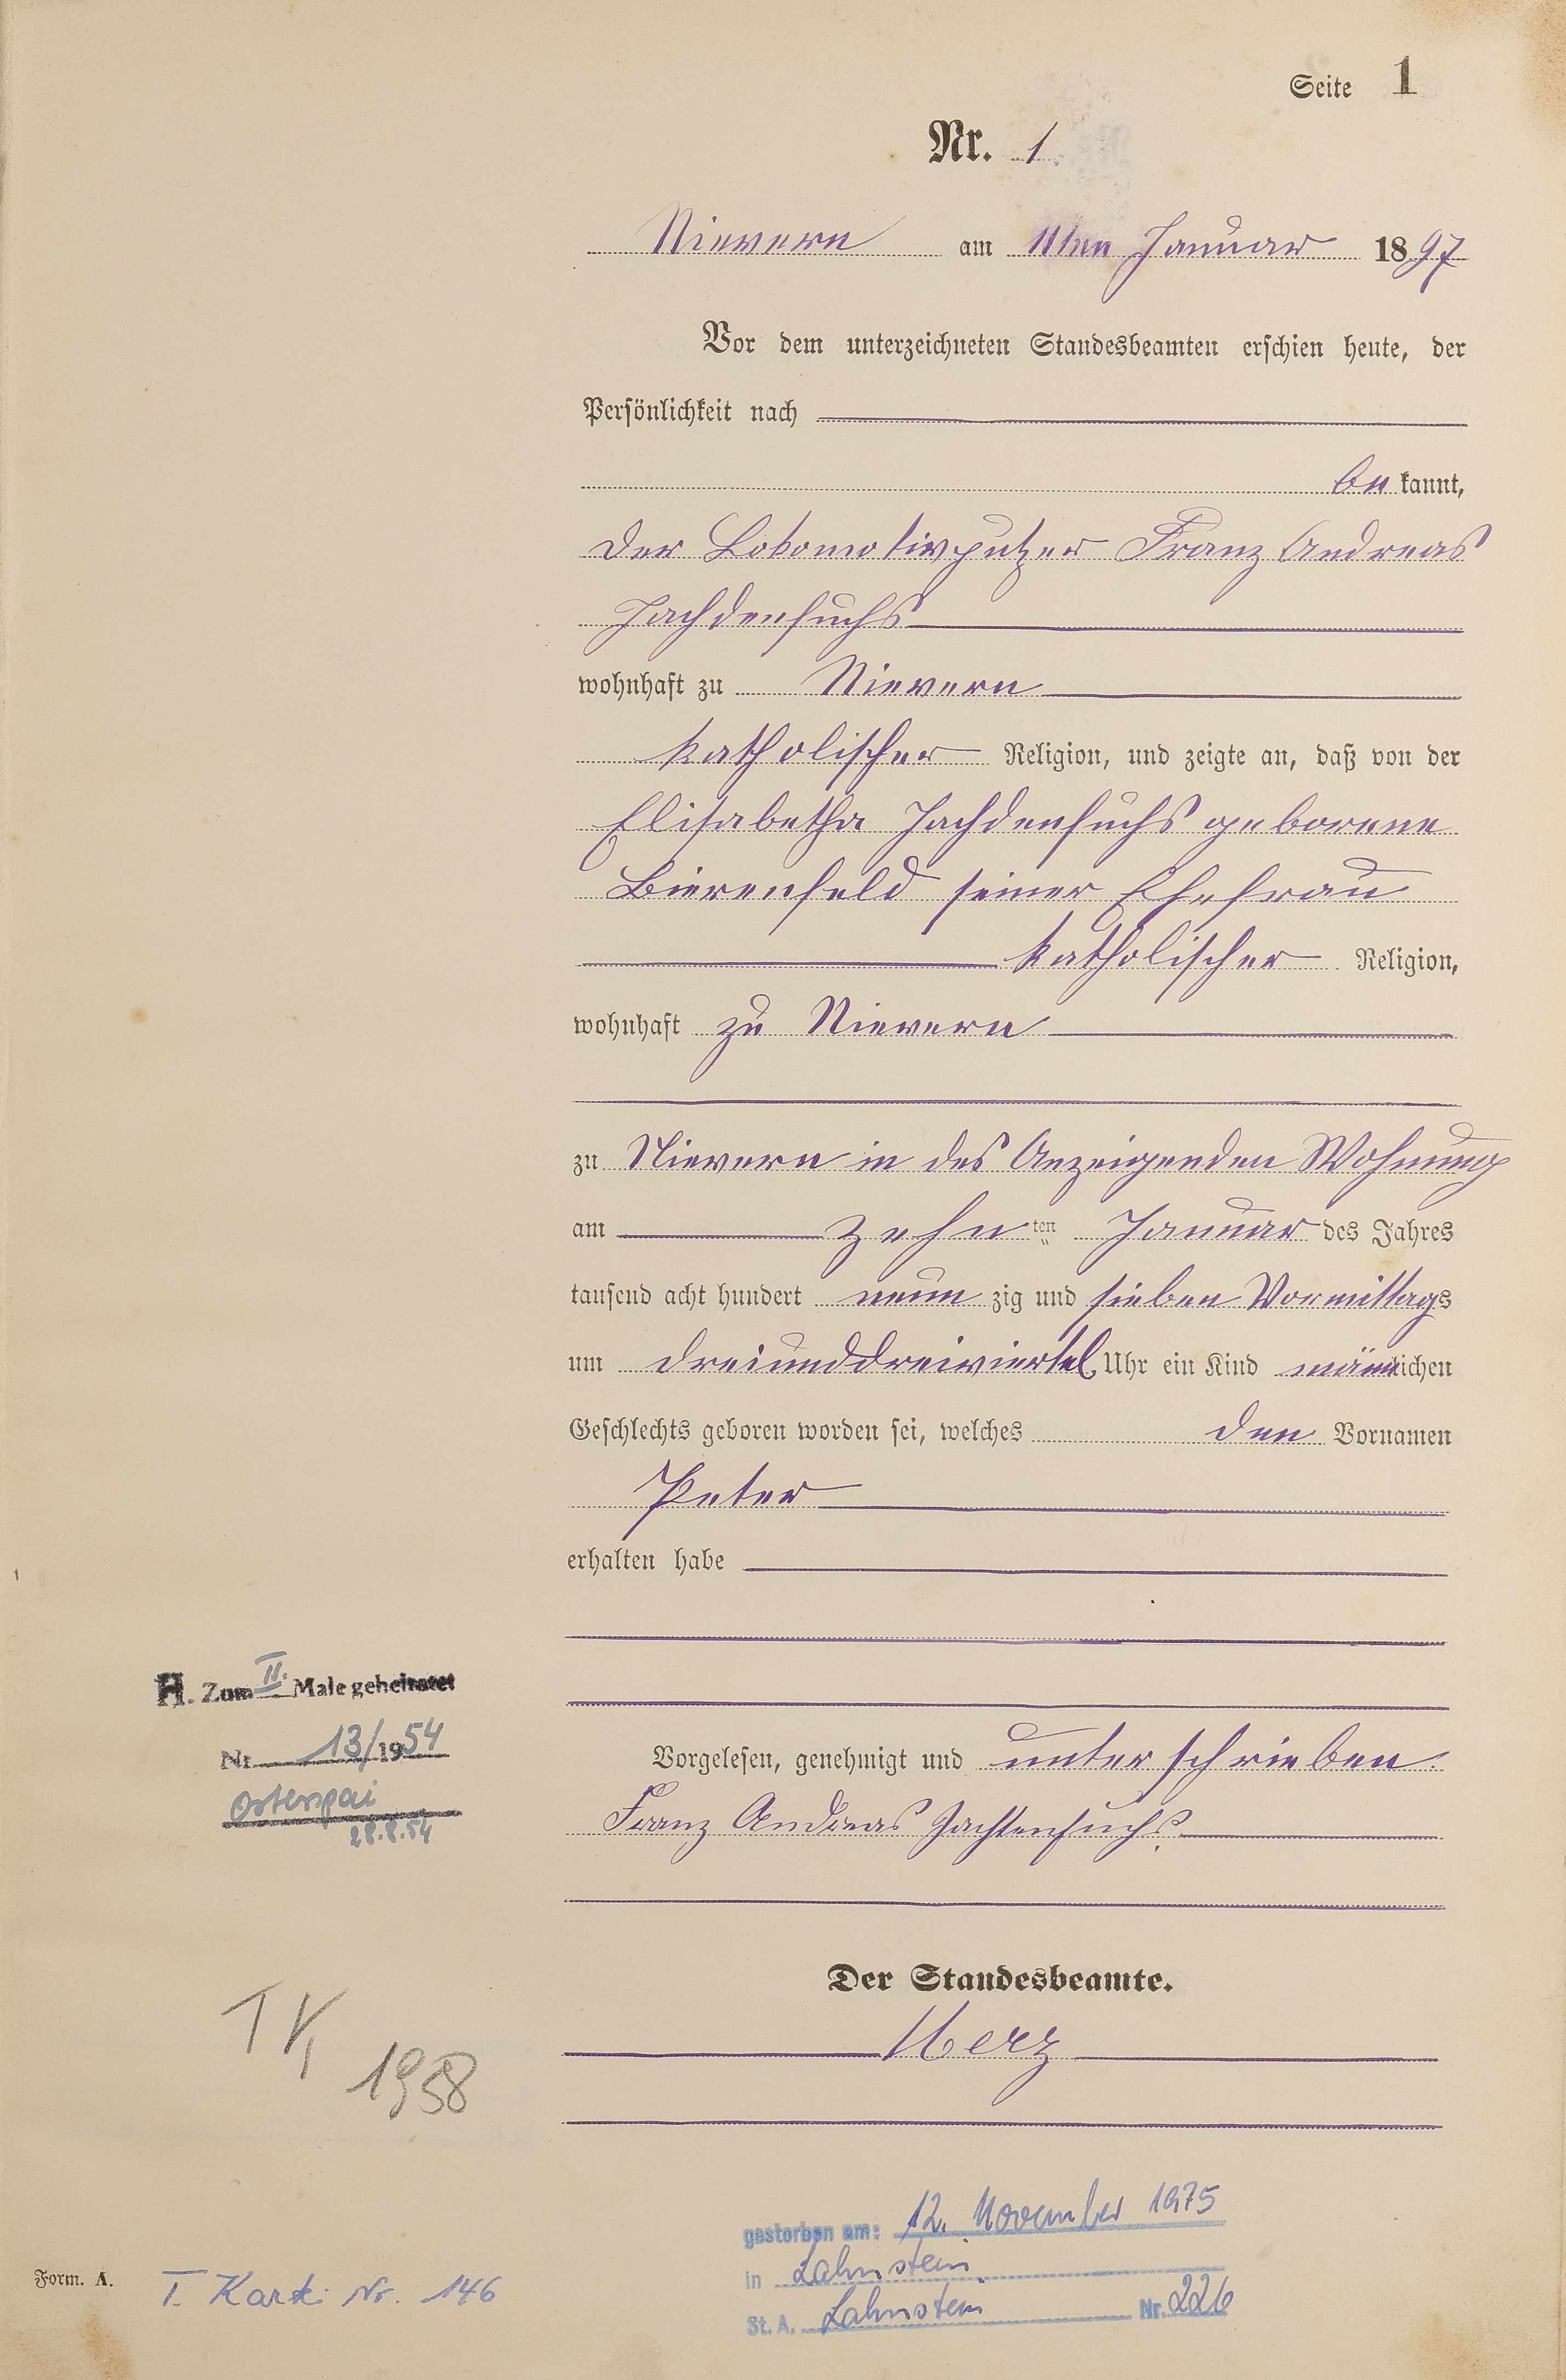 Seite 1
Nr. 1.
Nievern am 11ten Januar 1897
Vor dem unterzeichneten Standesbeamten erschien heute, der
Persönlichkeit nach
be kannt,
der Lokomotivputzer Franz Andreas
Jachdenfuchs
wohnhaft zu Nievern
katholischer Religion, und zeigte an, daß von der
Elisabetha Jachdenfuchs geborene
Bierenfeld seiner Ehefrau
katholischer Religion,
wohnhaft zu Nievern
zu Nievern in des Anzeigenden Wohnung
am zehn ten Januar des Jahres
tausend acht hundert neun zig und sieben Vormittags
um dreiunddreiviertel Uhr ein Kind männlichen
Geschlechts geboren worden sei, welches den Vornamen
Peter
erhalten habe
H. Zum II. Male geheiratet
Nr. 13/1954
Osterspai
28.8.54
Vorgelesen, genehmigt und unterschrieben.
Franz Andreas Jachtenfuchs.
Der Standesbeamte.
Merz
1958
gestorben am: 12. November 1975
in Lahnstein.
St. A. Lahnstein Nr. 226
Form. A.
T. Kartk: Nr. 146